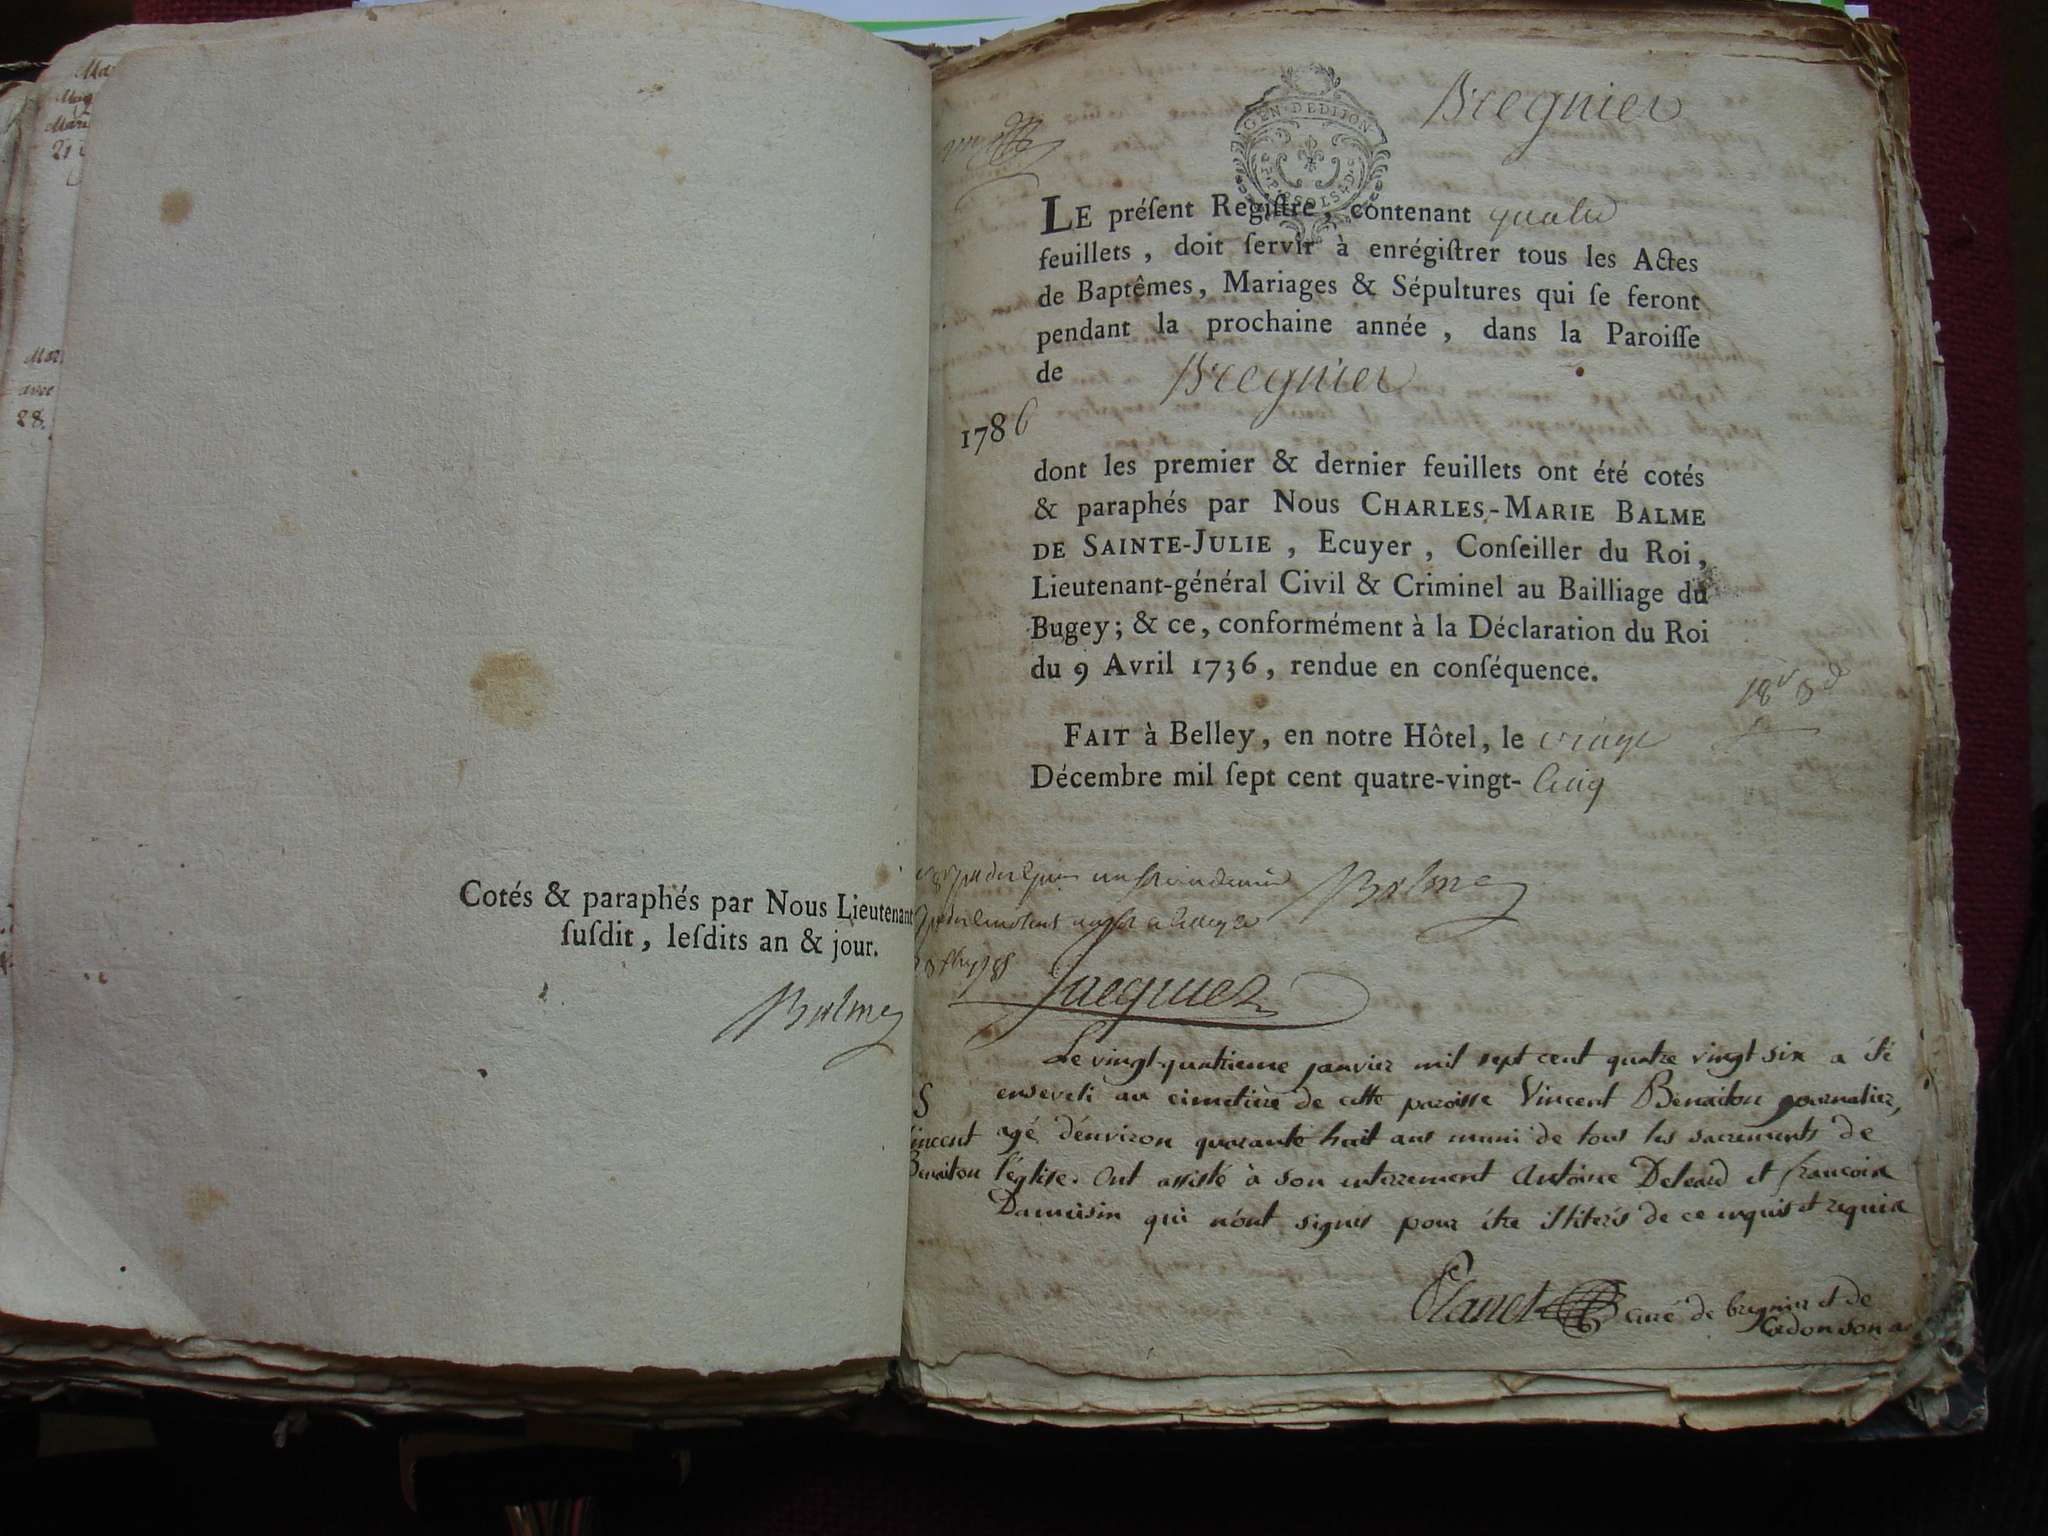 Cotés & paraphés par Nous Lieutenant
ſuſdit, leſdits an & jour.
Balme
Bregnier
GEN·DEDIJON
LE préſent Regiſtre, contenant quatre
feuillets, doit ſervir à enrégiſtrer tous les Actes
de Baptêmes, Mariages & Sépultures qui ſe feront
pendant la prochaine année, dans la Paroiſſe
de Bregnier
1786
dont les premier & dernier feuillets ont été cotés
& paraphés par Nous CHARLES-MARIE BALME
DE SAINTE-JULIE, Ecuyer, Conſeiller du Roi,
Lieutenant-général Civil & Criminel au Bailliage du
Bugey; & ce, conformément à la Déclaration du Roi
du 9 Avril 1736, rendue en conſéquence.
FAIT à Belley, en notre Hôtel, le
Décembre mil ſept cent quatre-vingt-Cinq
Balme
Jacquier
Le vingt-quatrieme janvier mil sept cent quatre vingt six a été
S enseveli au cimetière de cette paroisse Vincent Benaiton journalier,
incent agé d'environ quarante huit ans muni de tous les sacrements de
Benaiton l'église. Ont assisté à son enterrement Antoine et francoix
qui n'ont signés pour être illiterés de ce enquis et requix
curé de bregnier et de